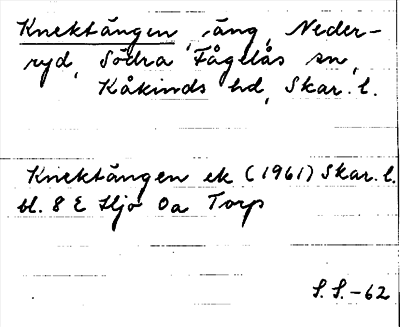 Knektängen, äng, Neder-
ryd, Södra Fågelås sn,
Kåkinds hd, Skar. l.
Knektängen ek (1961) Skar. l.
bl. 8 E Hjo 0a Torp
S. S.-62